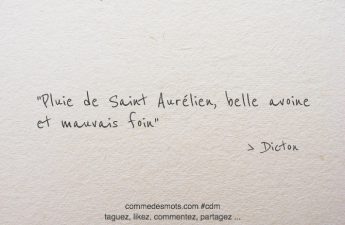 "Pluie de Saint Aurélien, belle avoine
et mauvais foin"
> Dicton
commedesmots.com #cdm
taguez, likez, commentez, partagez ...